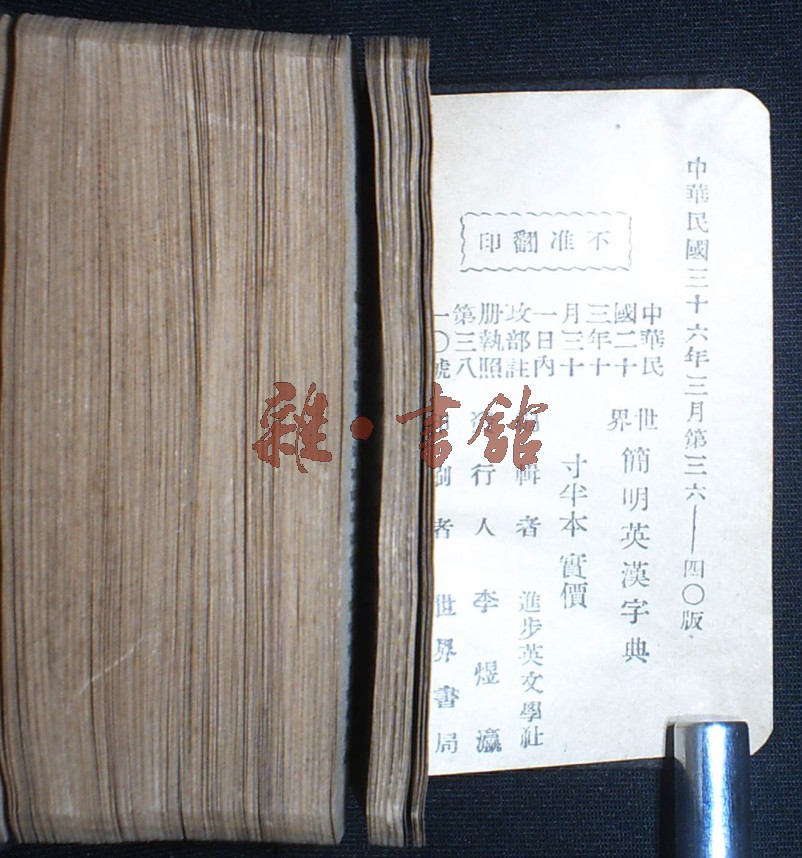 中華民國三十六年三月第三六——四〇版
不准翻印
中華民
國二十
三年十
月三十
一日內
政部註
册執照
第三八
一〇號
世界簡明英漢字典
寸半本 實價
輯者 進步英文學社
行人 李煜瀛
刷者 世界書局
雜·書館